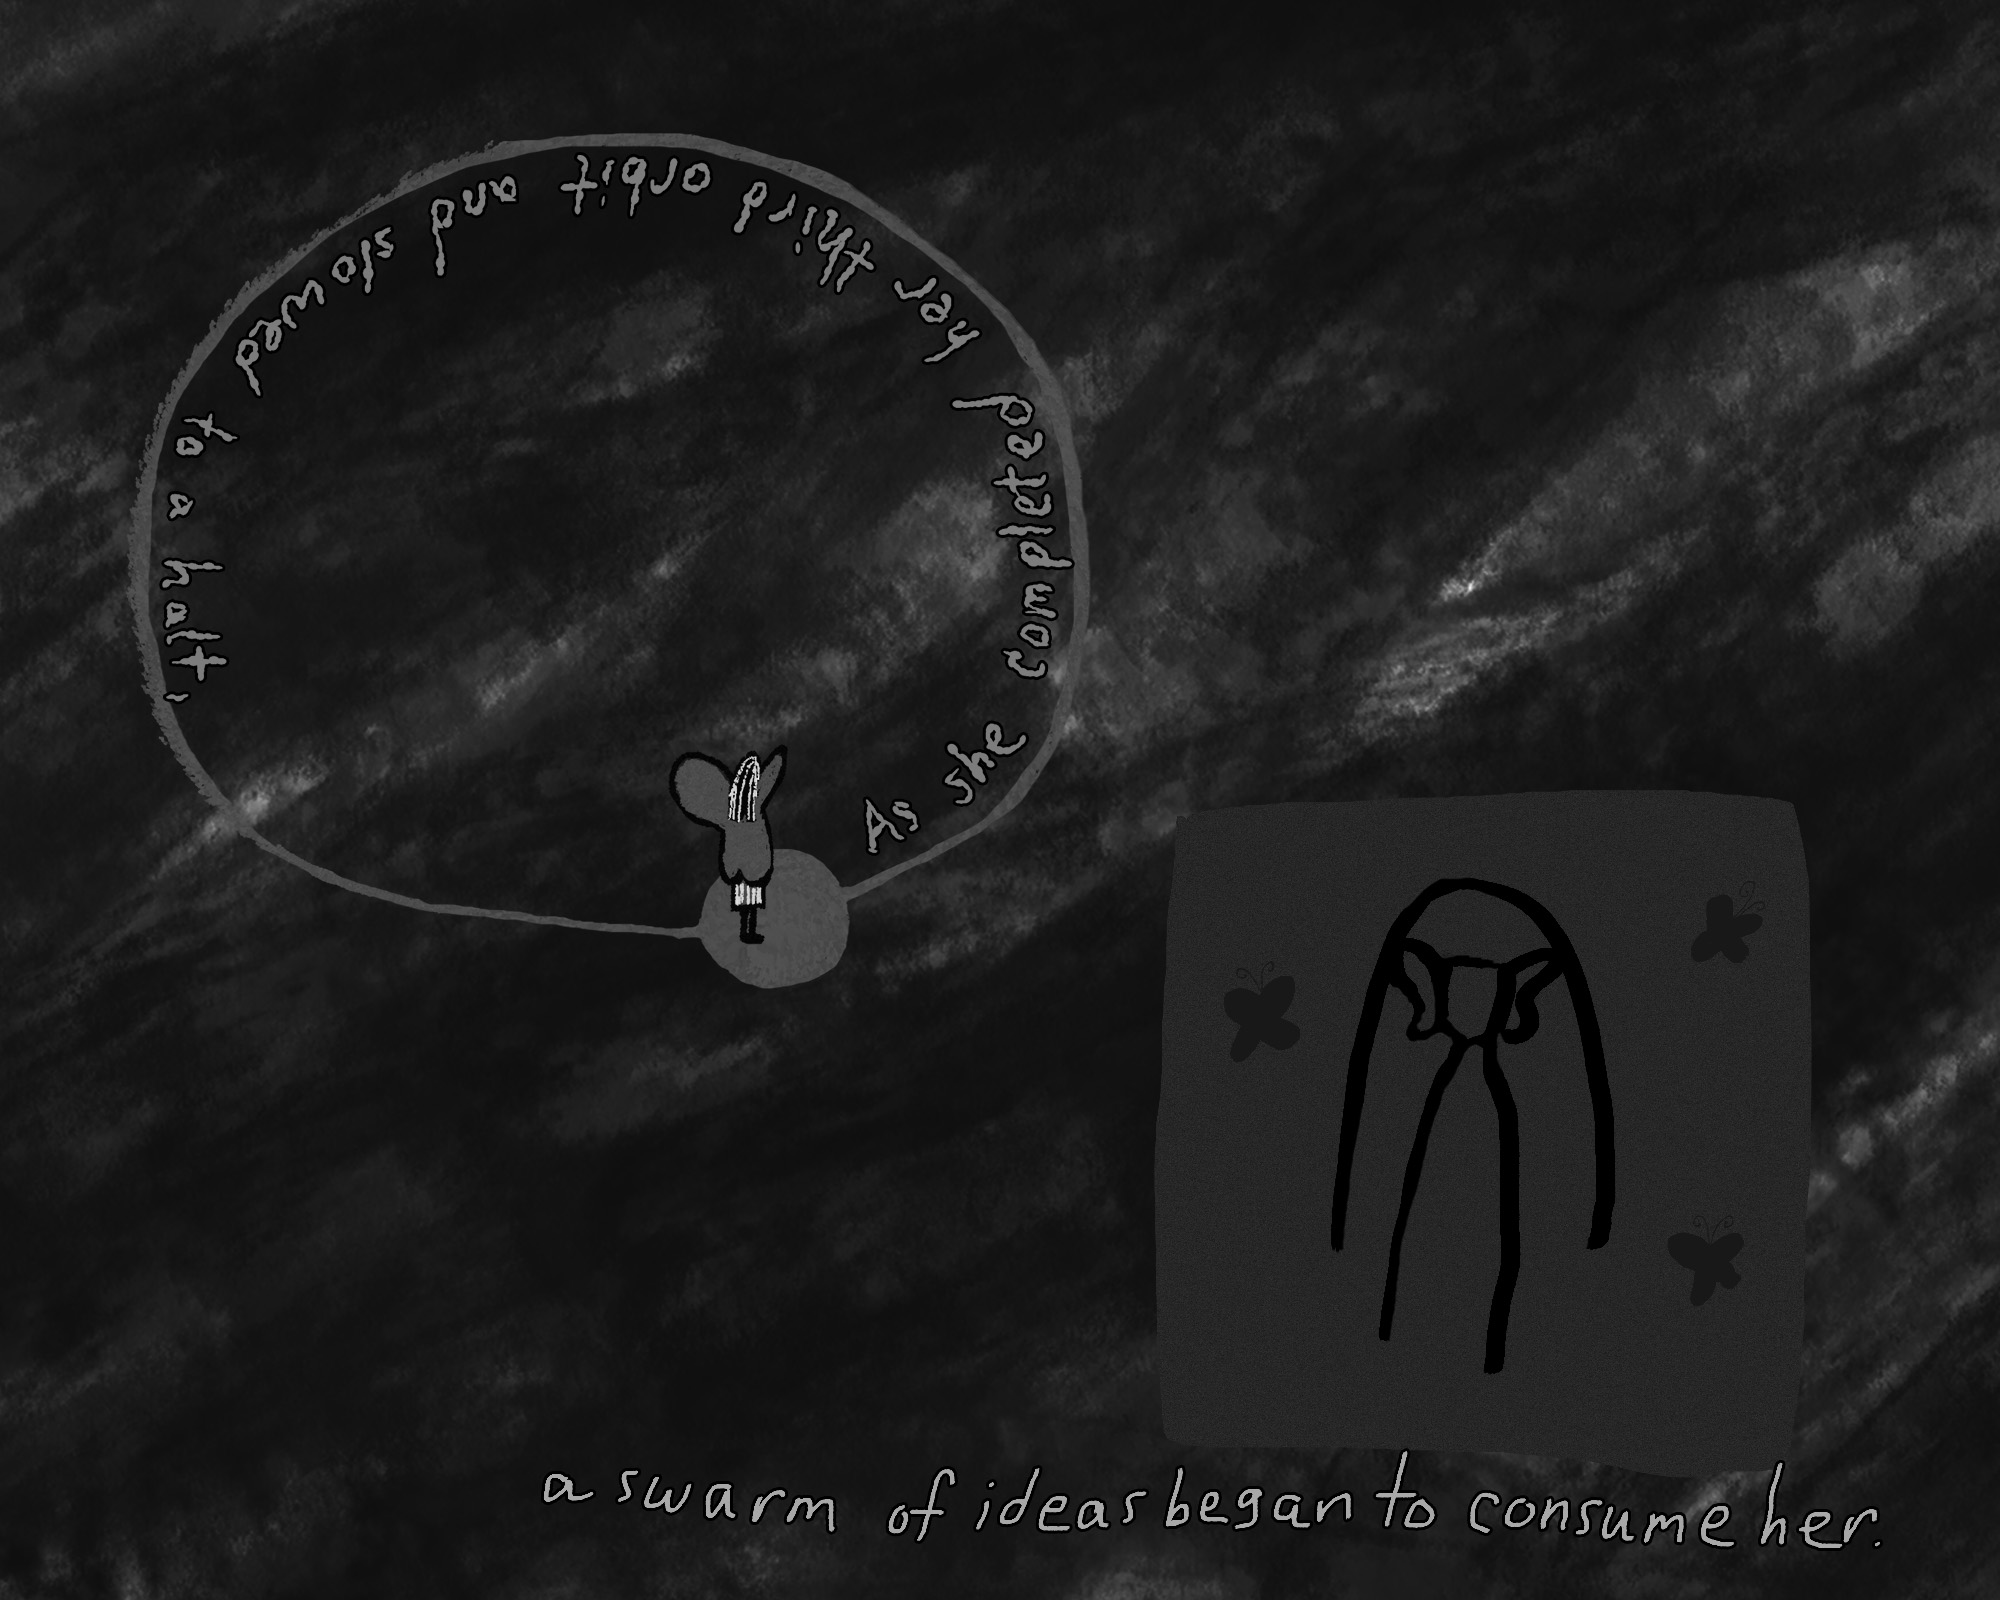 As she completed her third orbit and slowed to a halt,
a swarm of ideas began to consume her.